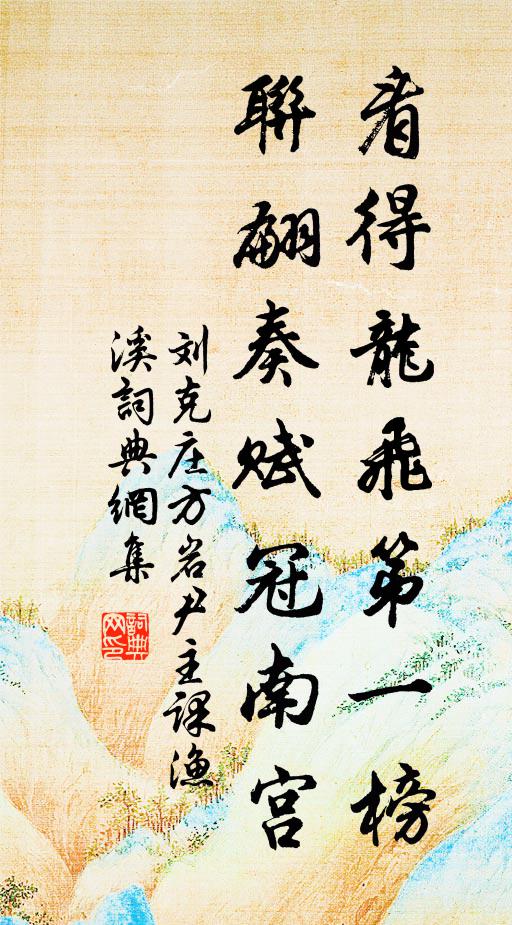 看得龍飛第一榜
聯翩奏賦冠南宮
刘克庄方岩尹主課漁
溪詞典網集
詞典
网印